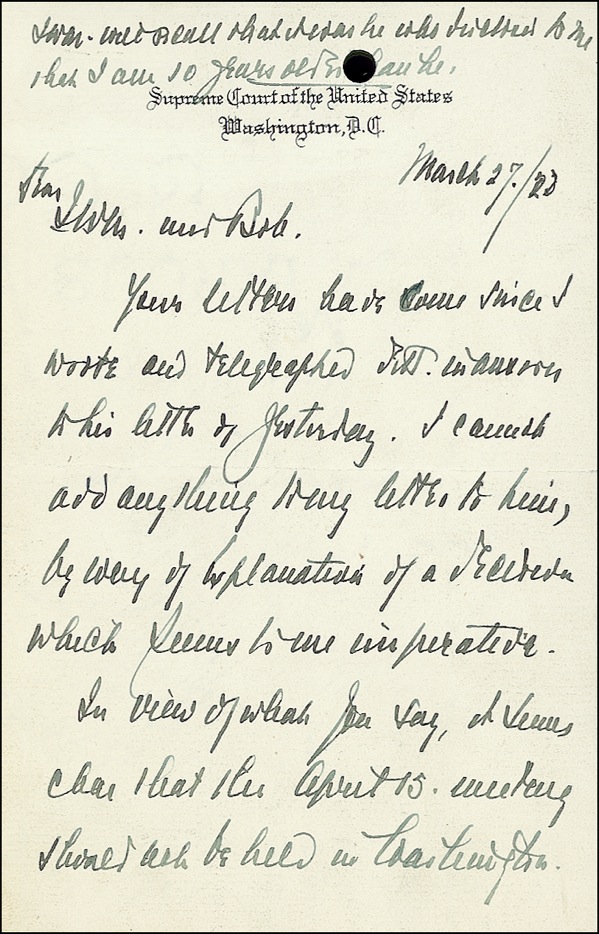 will recall that it was he who to me
that I am 10 years older than he.
Supreme Court of the United States
Washington, D.C.
March 27/23
Dear
and Bob.
Your letters have come since I
wrote and telegraphed in answer
to his letter of yesterday. I cannot
add anything to my letter to him,
by way of explanation of a decision
which seems to me imperative.
In view of what you say, it seems
clear that the April 15. meeting
should not be held in Washington.